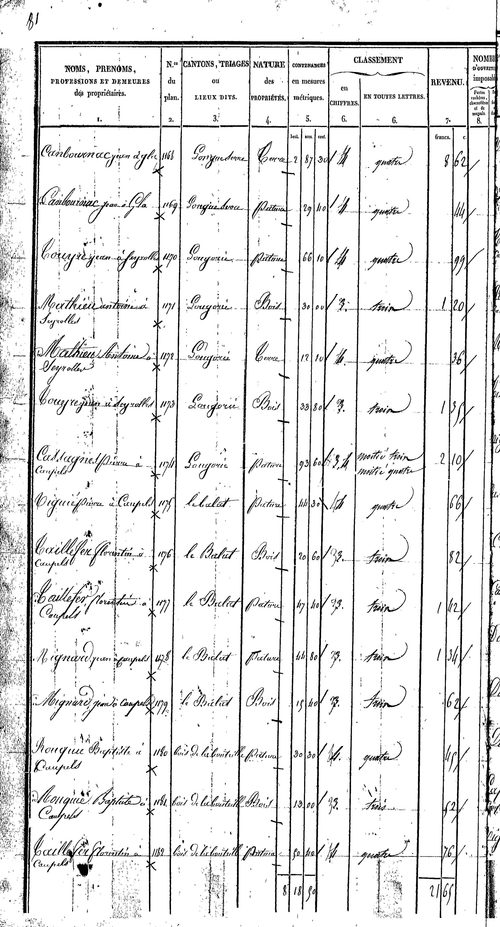 81
NOMS, PRENOMS,
PROFESSIONS ET DEMEURES
des propriétaires.
N.os
du
plan.
CANTONS, TRIAGES
ou
LIEUX DITS.
NATURE
des
PROPRIÉTÉS.
CONTENANCES
en mesures
métriques.
CLASSEMENT
en
CHIFFRES.
EN TOUTES LETTRES.
REVENU.
NOMB
D'OUVERT
imposab
1. 2. 3. 4. 5. 6. 6. 7. 8.
hect. ares. cent. francs. c.
1168 2 87 30 4 quatre 8 62
1169 pature 29 40 4 quatre 44
jean à Seyrolles 1170 Lougorie pature 66 10 4 quatre 99
Mathieu antoine à 1171 Lougorie Bois 30 00 3. trois 1 20
Seyrolles
Mathieu Antoine à 1172 Lougorie Terre 12 10 4 quatre 36
Seyrolles
jean à Seyrolles 1173 Lougorie Bois 33 80 3. trois 1 35
Cassagne pierre à 1174 Lougorie pature 93 60 3.4 moitié trois 2 10
Caupels moitié quatre
pierre à Caupels 1175 le balat Pature 44 30 4 quatre 66
Taillefer florentin à 1176 le Balat Bois 20 60 3. trois 82
Caupels
Taillefer florentin à 1177 le Balat Pature 47 40 3. trois 1 42
Caupels
Mignard jean à Caupels 1178 le Balat Pature 44 80 3. trois 1 34
Mignard jean à Caupels 1179 le Balat Bois 15 40 3 trois 62
Baptiste à 1180 bois de la Pature 30 30 4. quatre 45
Caupels
Baptiste à 1181 bois de la Bois 13 00 3. trois 52
Caupels
Taillefer florentin à 1182 bois de la Pature 50 40 4 quatre 76
Caupels
8 18 50 21 65